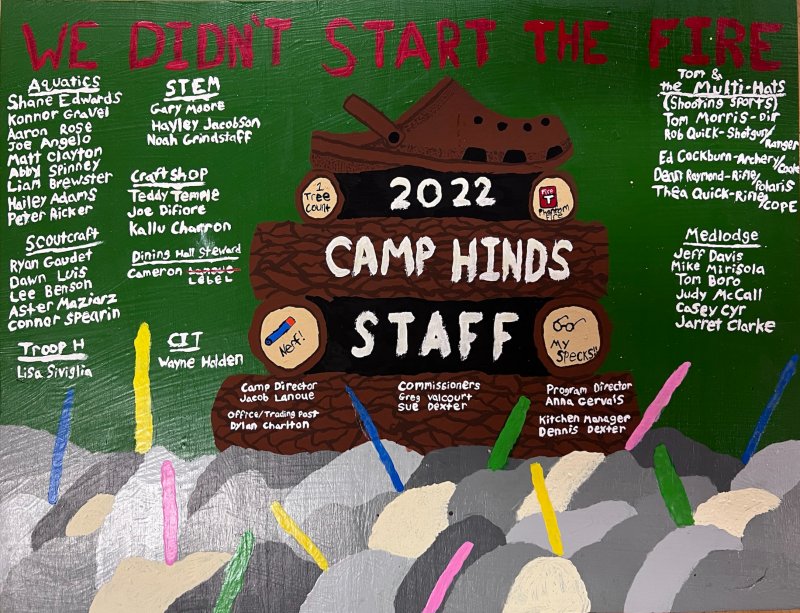 WE DIDN'T START THE FIRE
Aquatics
Shane Edwards
Konnor Gravel
Aaron Rose
Joe Angelo
Matt Clayton
Abby Spinney
Liam Brewster
Hailey Adams
Peter Ricker
Scoutcraft
Ryan Gaudet
Dawn Luis
Lee Benson
Aster Maziarz
Connor Spearin
Troop H
Lisa Siviglia
STEM
Gary Moore
Hayley Jacobson
Noah Grindstaff
Craftshop
Teddy Temple
Joe Difiore
Kallu Charron
Dining Hall Steward
Cameron Lanoue
LeBEL
CIT
Wayne Holden
1
Tree
Count
2022
Fire
T
Phantom
CAMP HINDS
Nerf!
STAFF
MY
Specks!!
Camp Director
Jacob Lanoue
Office/Trading Post
Dylan Charlton
Commissioners
Greg Valcourt
Sue Dexter
Program Director
Anna Gervais
Kitchen Manager
Dennis Dexter
Tom &
the Multi-Hats
(Shooting Sports)
Tom Morris-Dir
Rob Quick-Shotgun/
Ranger
Ed Cockburn-Archery/Cook
Dean Raymond-Rifle/
Polaris
Thea Quick-Rifle/
COPE
Medlodge
Jeff Davis
Mike Mirisola
Tom Boro
Judy McCall
Casey Cyr
Jarret Clarke